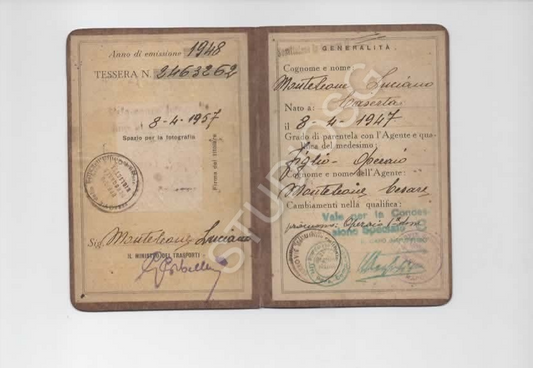 Anno di emissione 1948
TESSERA N. 2463262
8-4-1957
Spazio per la fotografia
Firma del titolare
Sig. Manteleone Luciano
IL MINISTRO DEI TRASPORTI
GENERALITÀ
Cognome e nome:
Manteleone Luciano
Nato a: Caserta
il 8-4-1947
Grado di parentela con l'Agente e qua-
lifica del medesimo:
Figlio - Operaio
Cognome e nome dell'Agente:
Manteleone Cesare
Cambiamenti nella qualifica:
Vale per la Conces-
sione Speciale C
Operaio